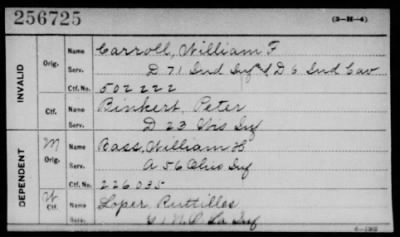 256725
(3-H-4)
INVALID
Orig.
Name Carroll, William F
Serv. D 71 Ind Inf & D 6 Ind Cav
Ctf. No. 502222
Ctf.
Name Binkert, Peter
Serv. D 23 Wis Inf
DEPENDENT
M
Orig.
Name Bass, William H
Serv. A 56 Ohio Inf
Ctf. No. 226035
W
Ctf.
Name Loper
Serv. Inf